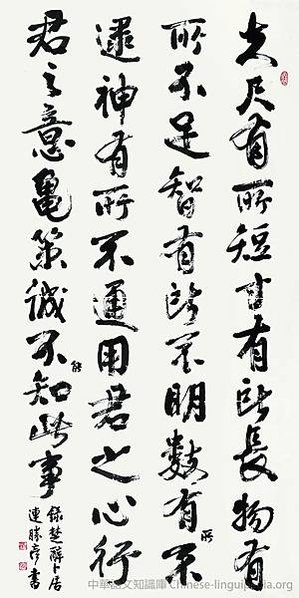 夫尺有所短寸有所長物有
所不足智有所不明數有所不
逮神有所不通用君之心行
君之意龜策誠不能知此事
錄楚辭卜居
連勝彥書
中華語文知識庫 Chinese-linguipedia.org